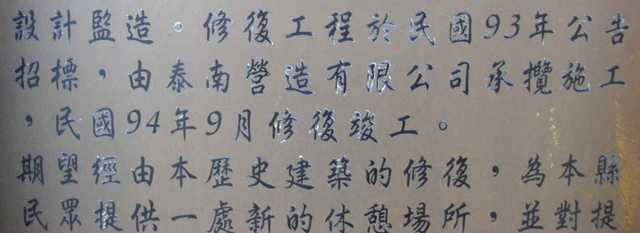 設計監造。修復工程於民國93年公告
招標，由泰南營造有限公司承攬施工
，民國94年9月修復竣工。
期望經由本歷史建築的修復，為本縣
民眾提供一處新的休憩場所，並對提